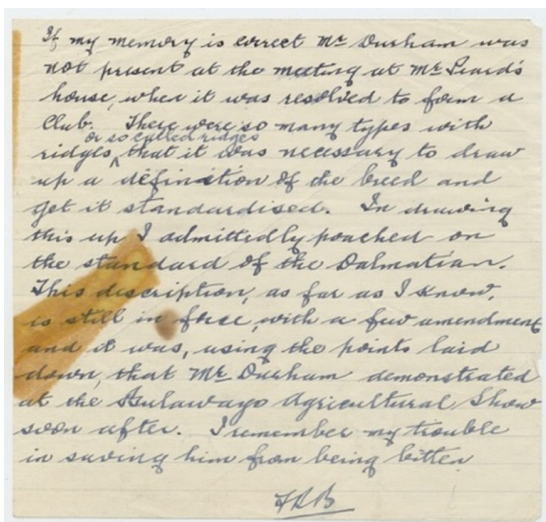 If my memory is correct Mr Durham was
not present at the meeting at Mr Edard's
house, when it was resolved to form a
Club. There were so many types with
or so called ridges
ridges, that it was necessary to draw
up a definition of the breed and
get it standardised. In drawing
this up I admittedly poached on
the standard of the Dalmatian.
This description, as far as I know,
is still in force, with a few amendment
and it was, using the points laid
down, that Mr Durham demonstrated
at the Bulawayo Agricultural Show
soon after. I remember my trouble
in saving him from being bitten
FRB